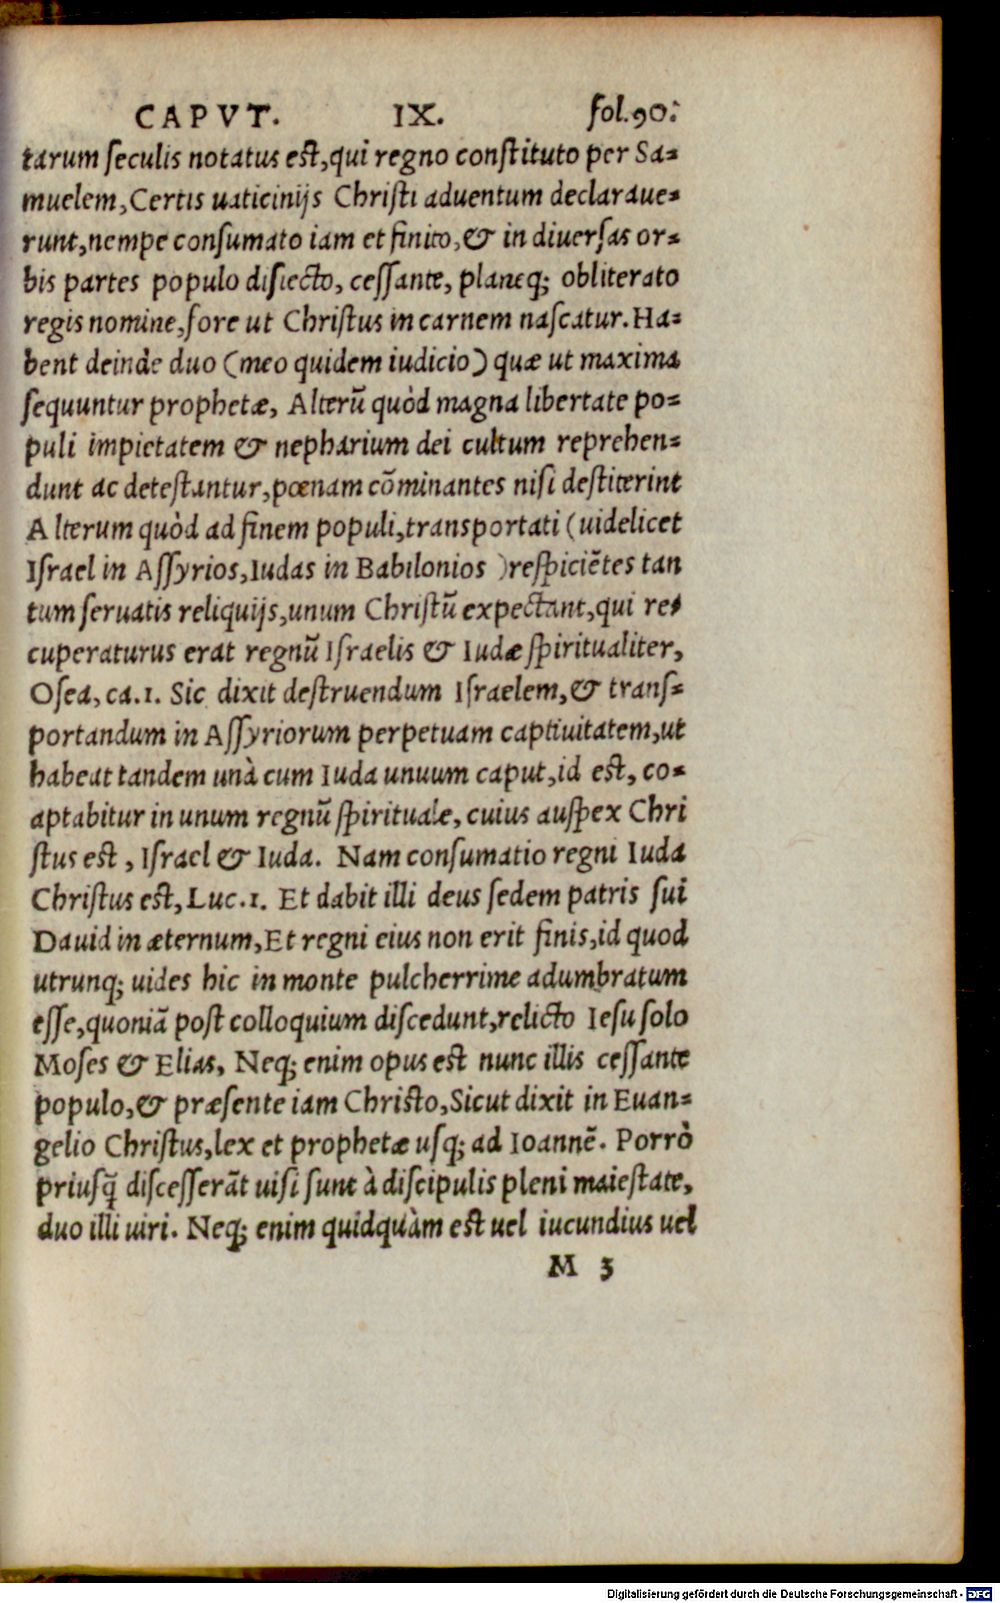 CAPVT. IX. fol.90.
tarum seculis notatus est, qui regno constituto per Sa-
muelem, Certis uaticinijs Christi aduentum declaraue-
runt, nempe consumato iam et finito, & in diuersas or-
bis partes populo disiecto, cessante, planeq; obliterato
regis nomine, fore ut Christus in carnem nascatur. Ha-
bent deinde duo (meo quidem iudicio) quæ ut maxima
sequuntur prophetæ, Alterũ quòd magna libertate po-
puli impietatem & nepharium dei cultum reprehen-
dunt ac detestantur, pœnam cõminantes nisi destiterint
Alterum quòd ad finem populi, transportati (uidelicet
Israel in Assyrios, Iudas in Babilonios ) respiciẽtes tan
tum seruatis reliquijs, unum Christũ expectant, qui re-
cuperaturus erat regnũ Israelis & Iudæ spiritualiter,
Osea, ca.1. Sic dixit destruendum Israelem, & trans-
portandum in Assyriorum perpetuam captiuitatem, ut
habeat tandem unà cum Iuda unuum caput, id est, co-
aptabitur in unum regnũ spirituale, cuius auspex Chri
stus est, Israel & Iuda. Nam consumatio regni Iuda
Christus est, Luc.1. Et dabit illi deus sedem patris sui
Dauid in æternum, Et regni eius non erit finis, id quod
utrunq; uides hic in monte pulcherrime adumbratum
esse, quoniã post colloquium discedunt, relicto Iesu solo
Moses & Elias, Neq; enim opus est nunc illis cessante
populo, & præsente iam Christo, Sicut dixit in Euan-
gelio Christus, lex et prophetæ usq; ad Ioannẽ. Porrò
priusq̃ discesserãt uisi sunt à discipulis pleni maiestate,
duo illi uiri. Neq; enim quidquàm est uel iucundius uel
M 3
Digitalisierung gefördert durch die Deutsche Forschungsgemeinschaft - DFG